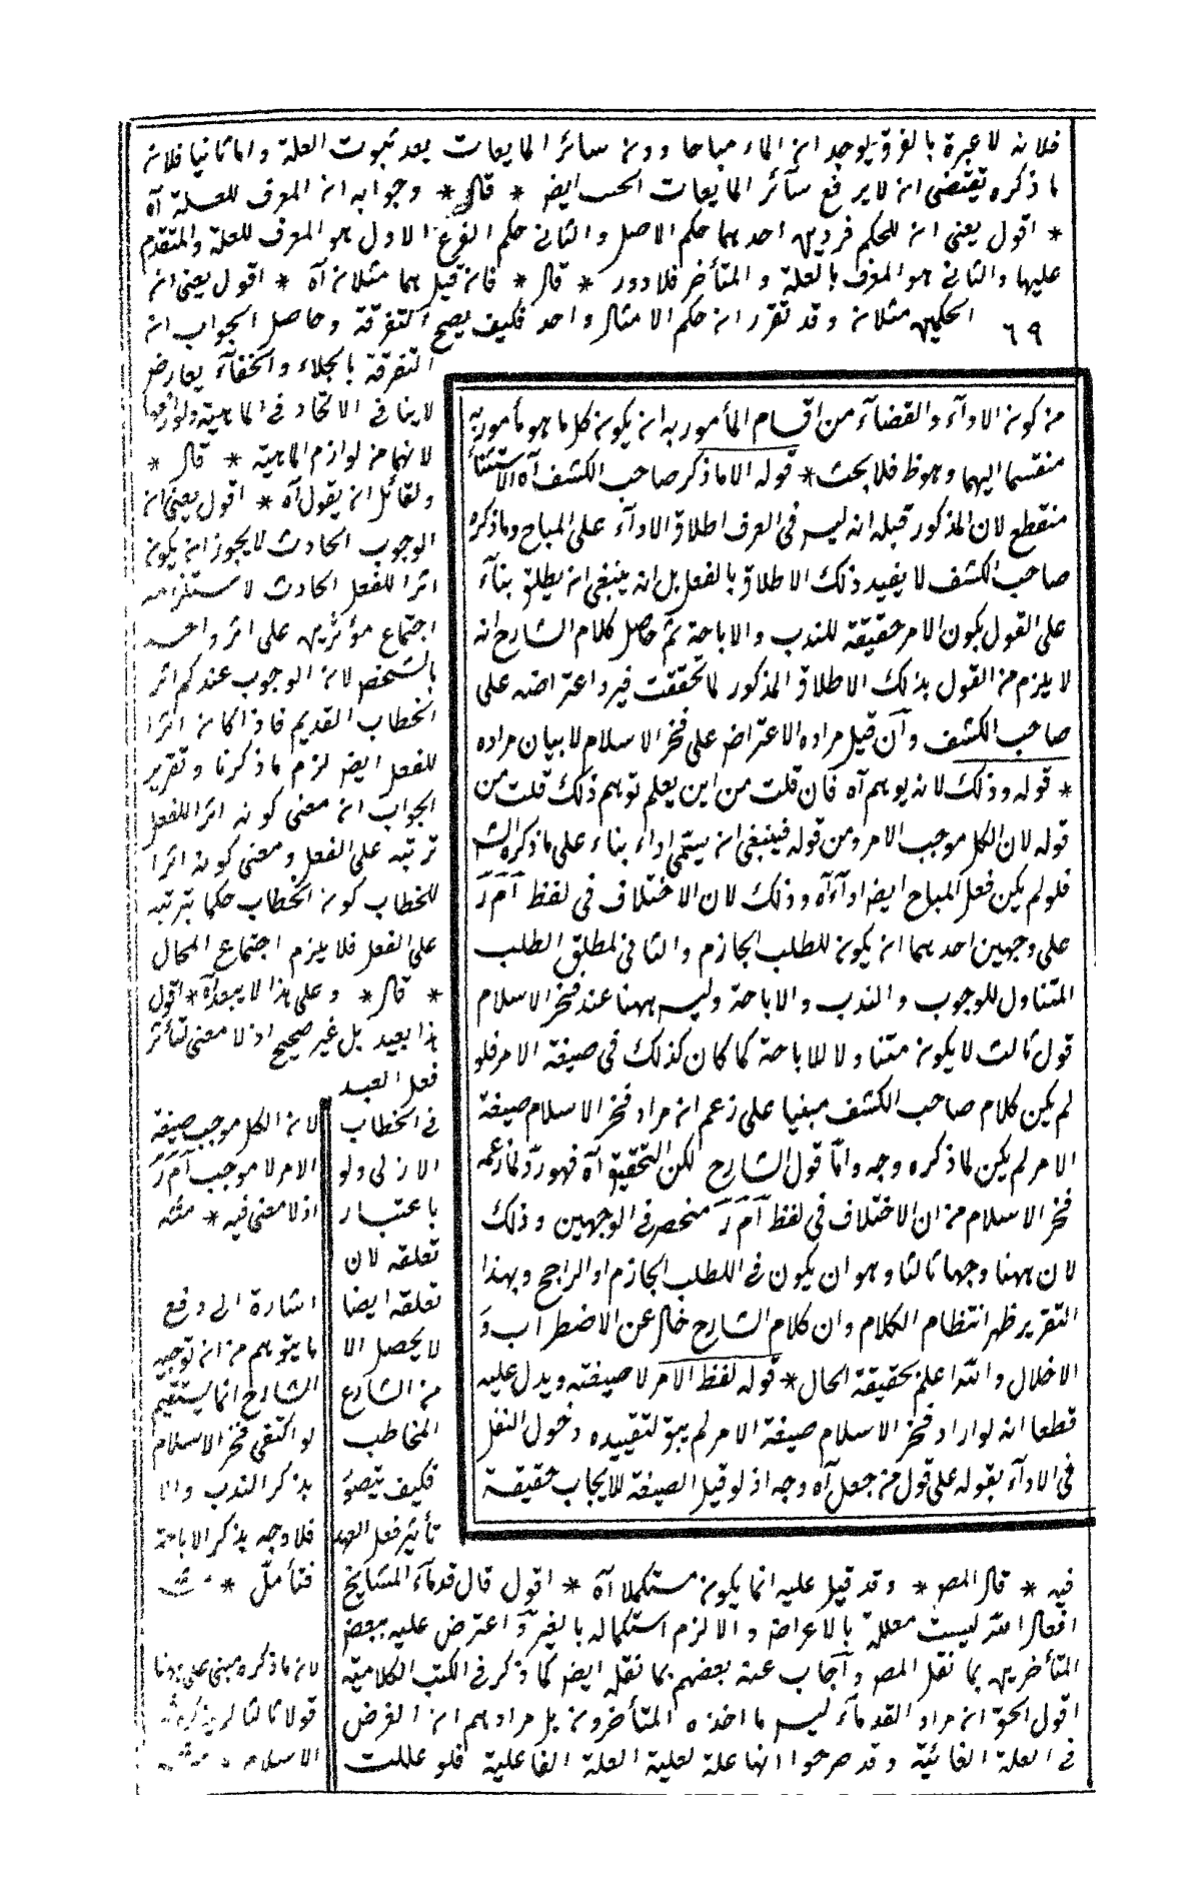 فلانه لا عبرة بالفرق يوجد ان الماء مباحا دون سائر المايعات بعد ثبوت العلة واما ثانيا فلان
ما ذكره يقتضى ان لا يرفع سآئر المايعات الحسب ايض * قال * وجوابه ان المعرف للعلة آه
* اقول يعنى ان للحكم فردين احدهما حكم الاصل والثانى حكم الفرع الاول هو المعرف للعلة والمتقدم
عليها والثانى هو المعرف بالعلة و المتأخر فلا دور * قال * فان قيل هما مثلان آه * اقول يعنى ان
٦٩ الحكمين مثلان وقد تقرر ان حكم الامثال واحد فكيف يصح التفرقة وحاصل الجواب ان
التفرقة بالجلاء والخفآء يعارض
لا ينافى الاتحاد فى الماهية ولوازمها
لانهما من لوازم الماهية * قال *
ولقائل ان يقول آه * اقول يعنى ان
الوجوب الحادث لا يجوز ان يكون
اثرا للفعل الحادث لاستلزامه
اجتماع مؤثرين على اثر واحد
بالشخص لان الوجوب عندكم اثر
الخطاب القديم فاذا كان اثرا
للفعل ايض لزم ما ذكرنا وتقرير
الجواب ان معنى كونه اثرا للفعل
ترتبه على الفعل ومعنى كونه اثرا
للخطاب كون الخطاب حكما بترتبه
على الفعل فلا يلزم اجتماع المحال
* قال * وعلى هذا لا يبعد آه * اقول
هذا بعيد بل غير صحيح اذ لا معنى لتأثر
فعل العبد
فى الخطاب
الازلى ولو
باعتبار
تعلقه لان
تعلقه ايضا
لا يحصل الا
من الشارع
المخاطب
فكيف يتصو
تأثير فعل العبد
فيه * قال المص * وقد قيل عليه انما يكون مستكملا آه * اقول قال قدمآء المشايخ
افعال الله ليست معللة بالاغراض والا لزم استكماله بالغير واعترض عليه بعض
المتأخرين بما نقل المص واجاب عنه بعضهم بما نقله ايض كما ذكر فى الكتب الكلامية
اقول الحق ان مراد القدمآء ليس ما اخذه المتأخرون بل مرادهم ان الغرض
فى العلة الغائية وقد صرحوا انها علة لعلية العلة الفاعلية فلو عللت
من كون الادآء والقضآء من اقسام المأمور به ان يكون كل ما هو مأمور به
منقسما اليهما وهو ظ فلا بحث * قوله الا ما ذكر صاحب الكشف آه الاستثنآء
منقطع لان المذكور قبله انه ليس فى العرف اطلاق الادآء على المباح وما ذكره
صاحب الكشف لا يفيد ذلك الاطلاق بالفعل بل انه ينبغى ان يطلق بنآء
على القول بكون الامر حقيقة للندب والاباحة ثم حاصل كلام الشارح انه
لا يلزم من القول بذلك الاطلاق المذكور لما تحققت فيرد اعتراضه على
صاحب الكشف وان قيل مراده الاعتراض على فخر الاسلام لا بيان مراده
* قوله وذلك لانه يوهم آه فان قلت من اين يعلم توهم ذلك قلت من
قوله لان الكل موجب الامر ومن قوله فينبغى ان يسمى اداء بناء على ما ذكره الش
فلو لم يكن فعل المباح ايض ادآء آه وذلك لان الاختلاف فى لفظ اَمَرَ
على وجهين احدهما ان يكون للطلب الجازم والثانى لمطلق الطلب
المتناول للوجوب والندب والاباحة وليس ههنا عند فخر الاسلام
قول ثالث لا يكون متناولا للاباحة كما كان كذلك فى صيغة الامر فلو
لم يكن كلام صاحب الكشف مبنيا على زعم ان مراد فخر الاسلام صيغة
الامر لم يكن لما ذكره وجه واما قول الشارح لكن التحقيق آه فهو رد لما زعمه
فخر الاسلام من ان الاختلاف فى لفظ اَمَرَ منحصر فى الوجهين وذلك
لان ههنا وجها ثالثا وهو ان يكون فى الطلب الجازم او الراجح وبهذا
التقرير ظهر انتظام الكلام وان كلام الشارح خال عن الاضطراب و
الاخلال والله اعلم بحقيقة الحال * قوله لفظ الامر لا صيغته ويدل عليه
قطعا انه لو اراد فخر الاسلام صيغة الامر لم يبق لتقييده دخول النفل
فى الادآء بقوله على قول من جعل آه وجه اذ لو قيل الصيغة للايجاب حقيقة
لان الكل موجب صيغة
الامر لا موجب اَمَرَ
اذ لا معنى فيه * منه
اشارة الى دفع
ما يتوهم من ان توجيه
الشارح انما يستقيم
لو اكتفى فخر الاسلام
بذكر الندب والا
فلا وجه بذكر الاباحة
فتأمل *
لان ما ذكره مبنى على
قولا ثالثا لم يذكره
الاسلام *